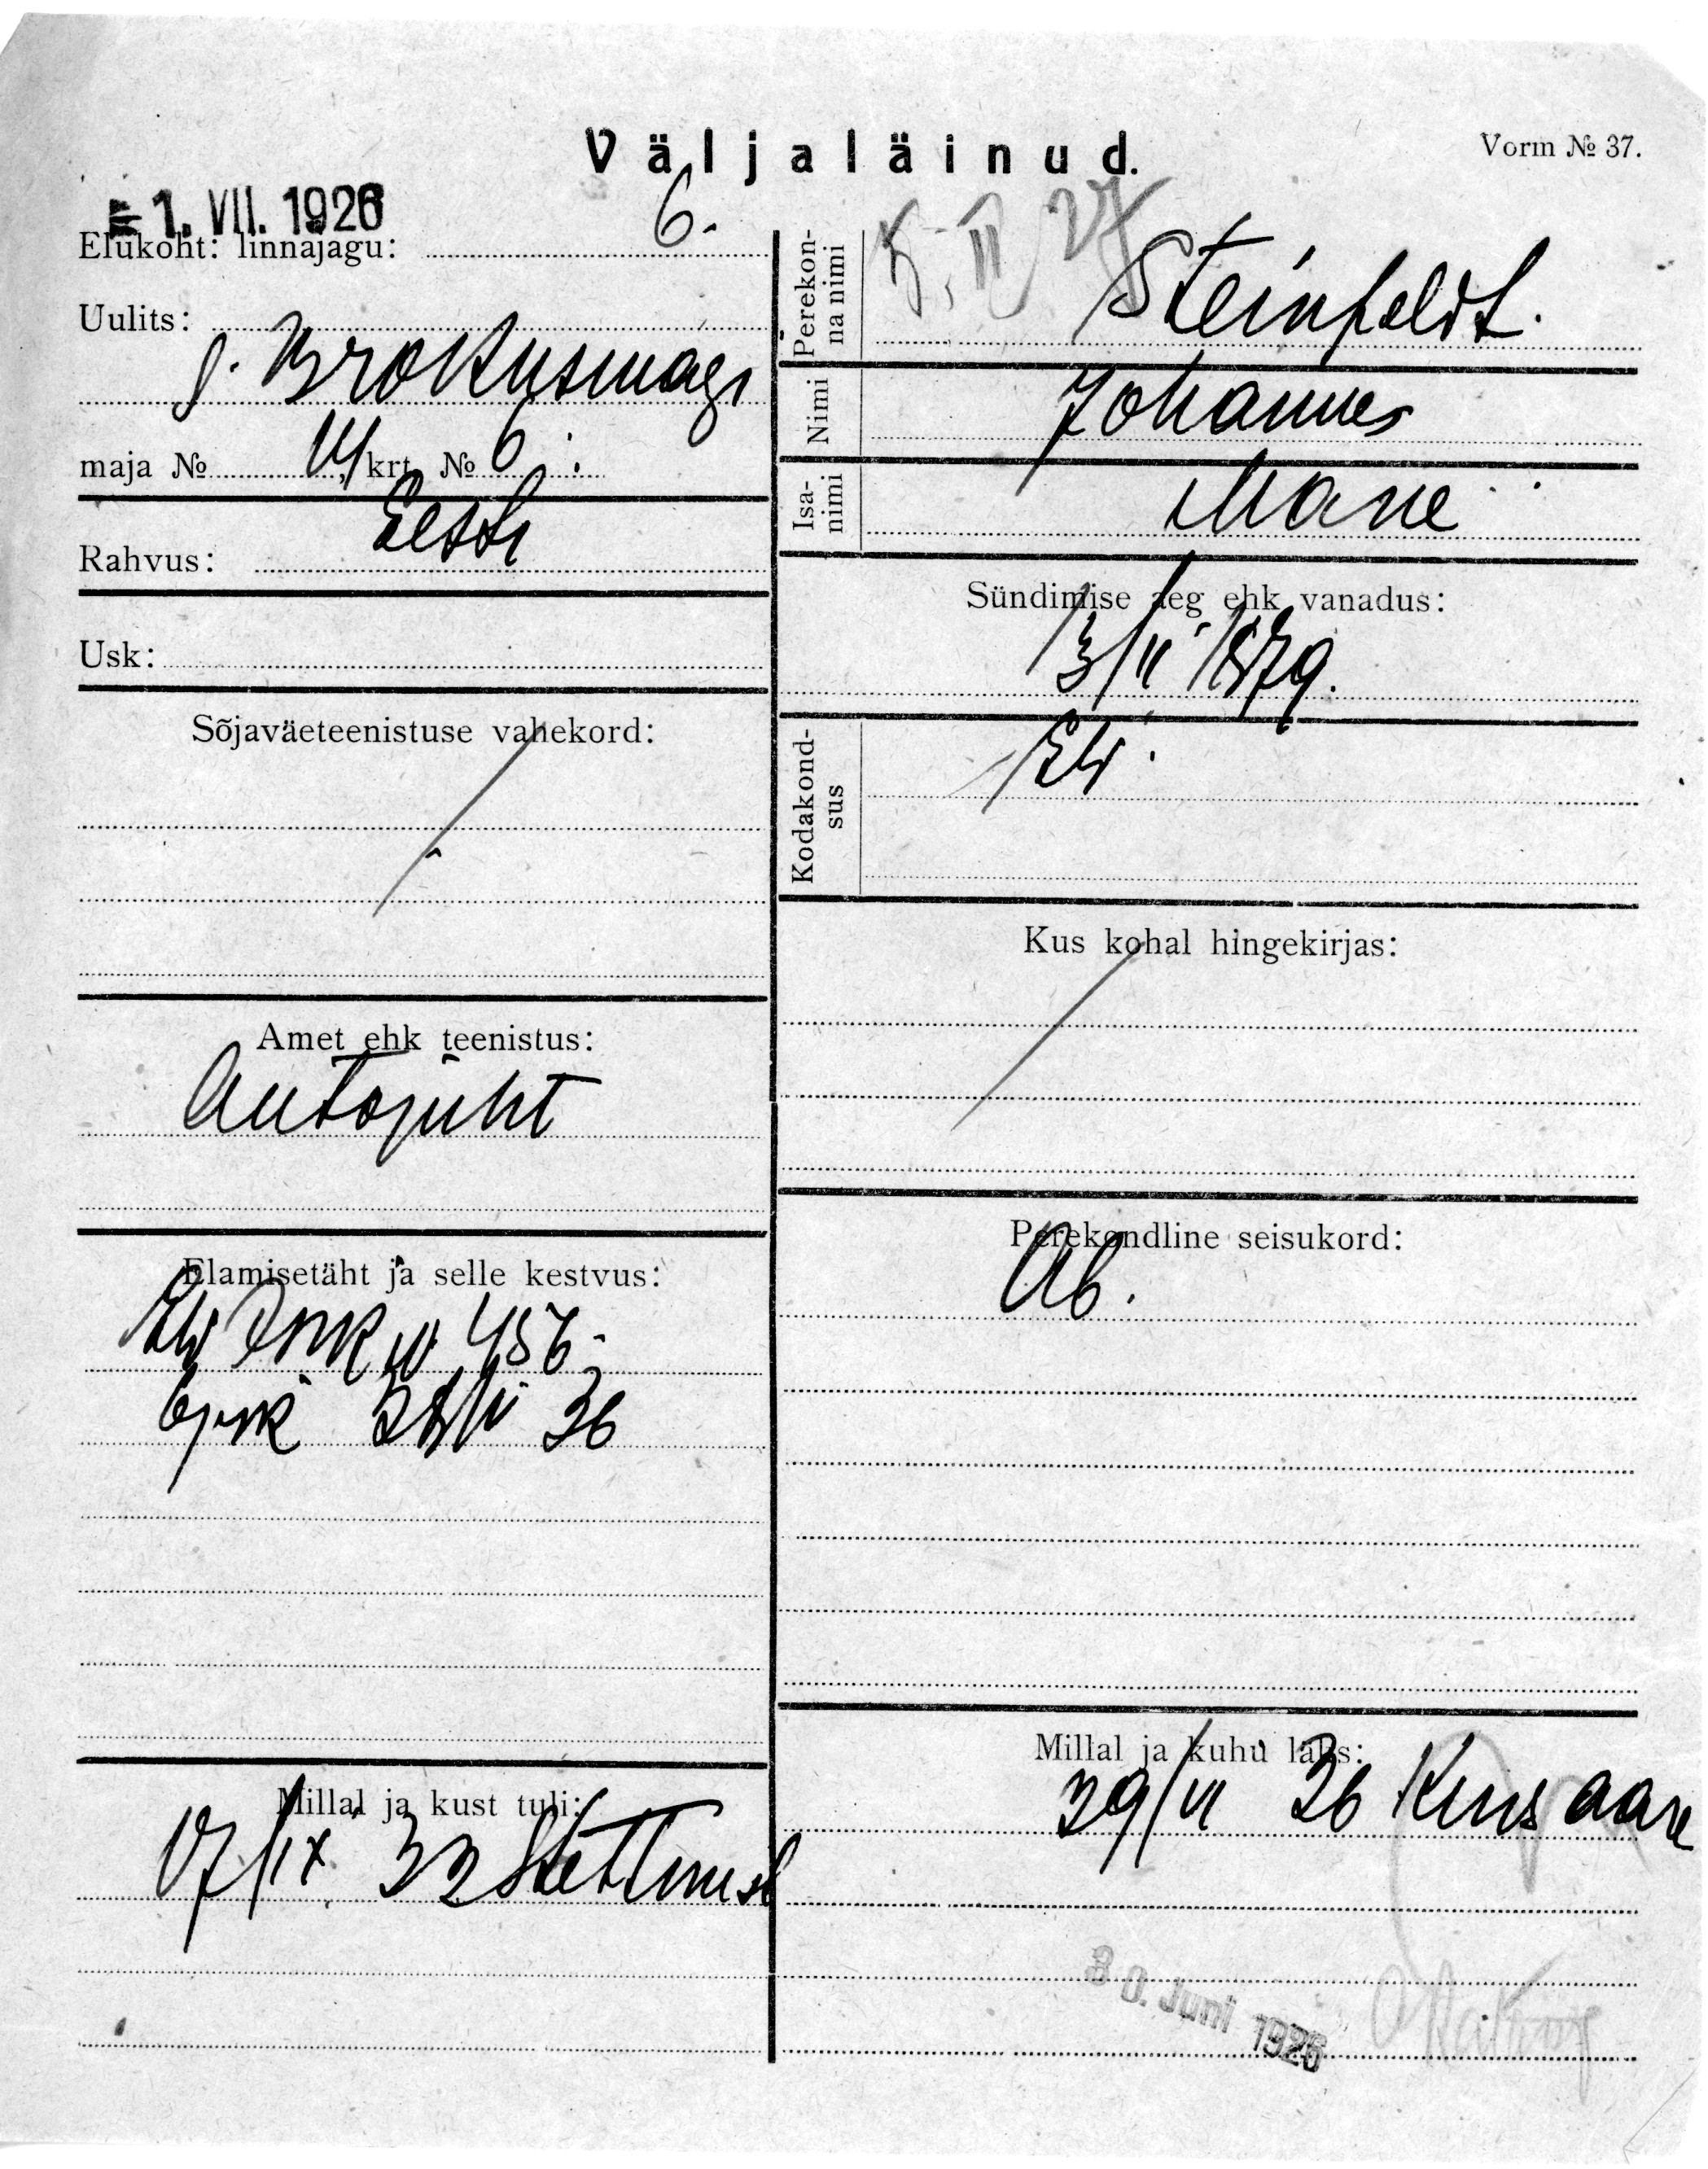 Väljaläinud.
Vorm № 37.
1. VII. 1926
Elukoht: linnajagu: 6.
Uulits:
g. Brokusmägi
maja № 14, krt. № 6.
Rahvus: Eesti
Usk:
Sõjaväeteenistuse vahekord:
Amet ehk teenistus:
Autojuht
Elamisetäht ja selle kestvus:
456.
26
Millal ja kust tuli:
17/IX 22 Stettinist
5. II 27
Perekon-
na nimi
Steinfeldt.
Nimi
Johannes
Isa-
nimi
Sündimise aeg ehk vanadus:
13/II 1879.
Kodakond-
sus
Kus kohal hingekirjas:
Perekondline seisukord:
Ab.
Millal ja kuhu läks:
29/VI 26 Kuresaare
30. Juni 1926